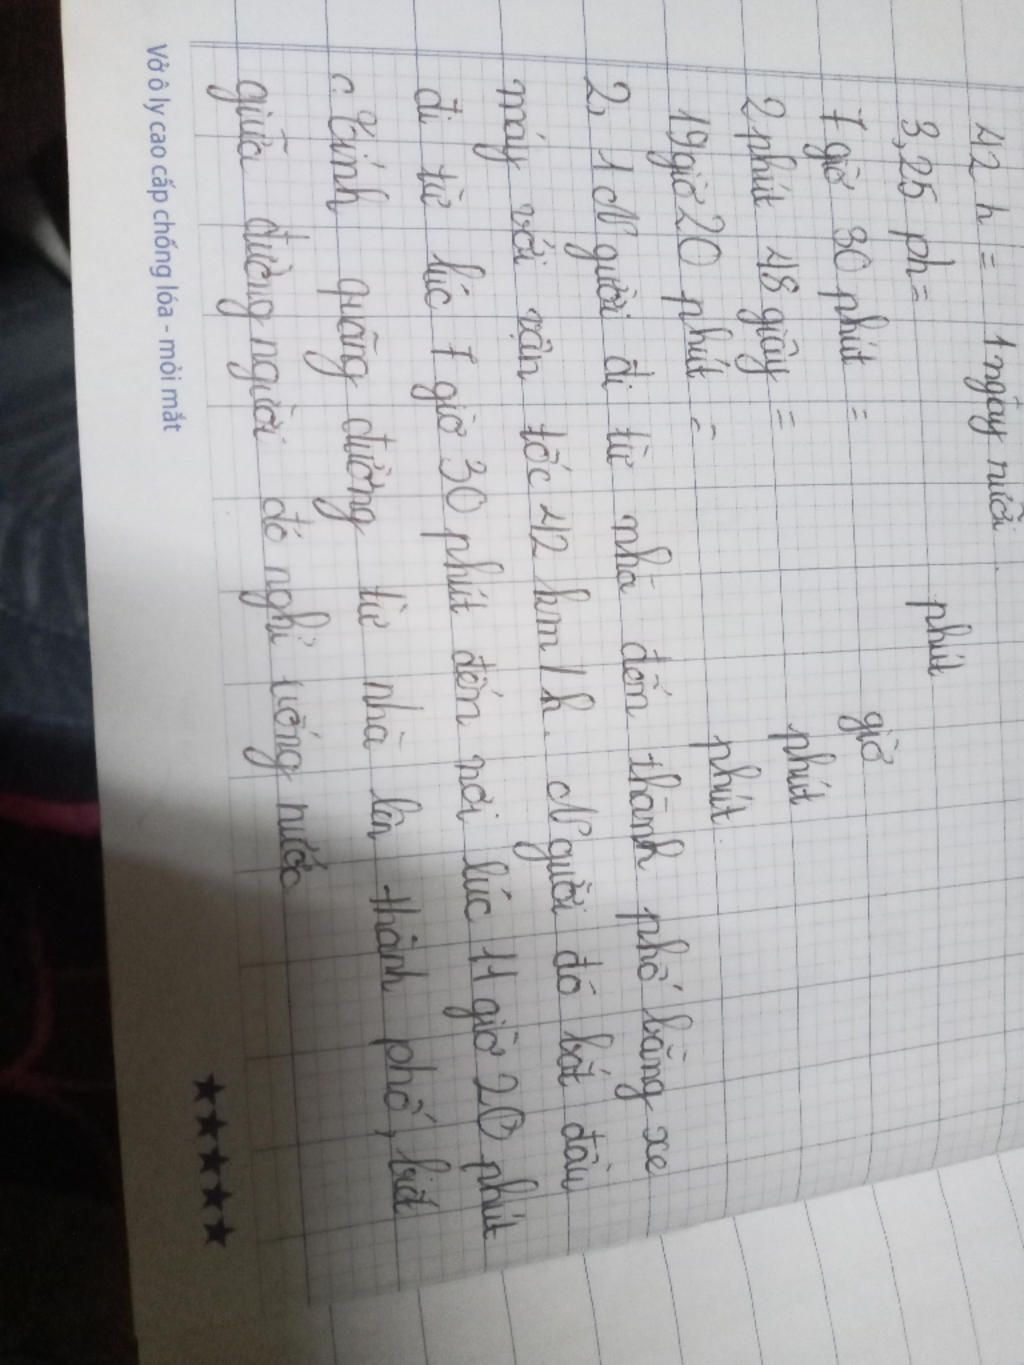 42 h = 1 ngày rưỡi.
3,25 ph = phút
7 giờ 30 phút = giờ
2 phút 48 giây = phút
19 giờ 20 phút = phút
2, 1 Người đi từ nhà đến thành phố bằng xe
máy với vận tốc 42 km/h. Người đó bắt đầu
đi từ lúc 7 giờ 30 phút đến nơi lúc 11 giờ 20 phút
c. Tính quãng đường từ nhà lên thành phố, biết
giữa đường người đó nghỉ uống nước
Vở ô ly cao cấp chống lóa - mỏi mắt